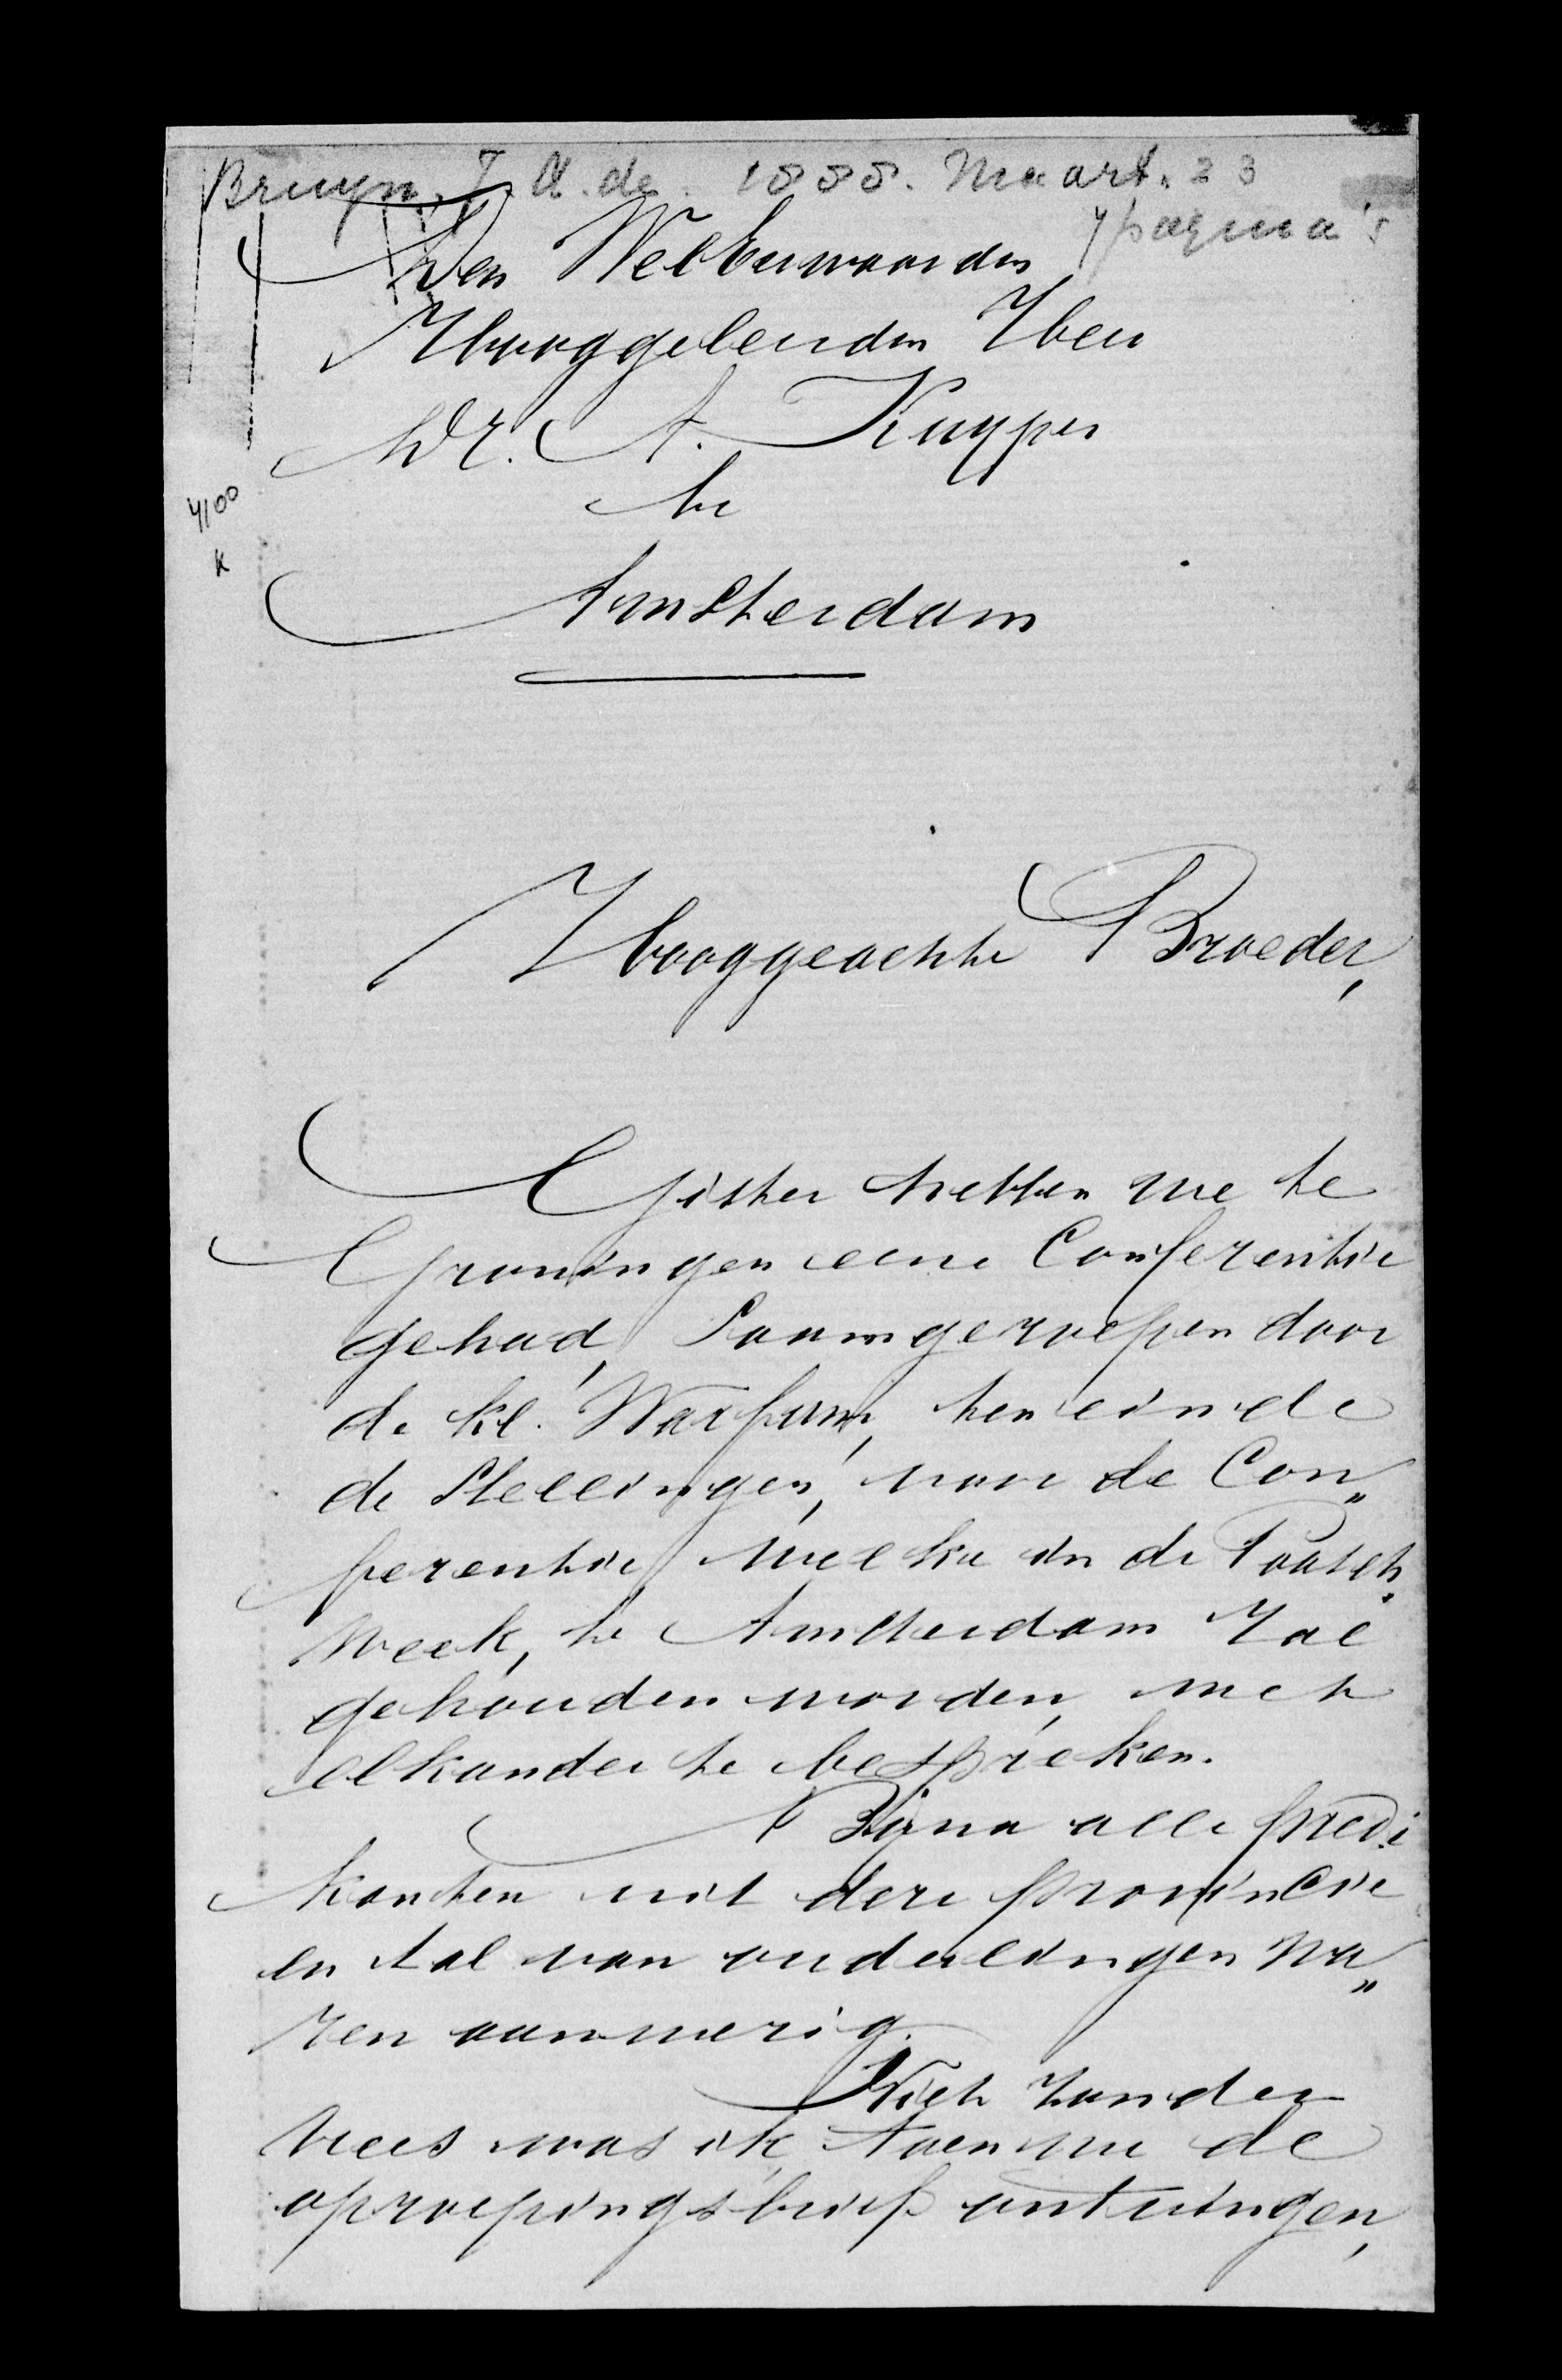 Bruyn, J. A. de. 1888. Maart. 23
4 pagina's
Den WelEerwaarden
Hooggeleerden Heer
Dr. A. Kuyper
te
Amsterdam
4100
K
Hooggeachte Broeder,
Gister hebben we te
Groningen eene Conferentie
gehad, Saamgeroepen door
de kl. Warfum, ten einde
de Stellingen, voor de Con„
ferentie, welke in de Paasch.
week, te Amsterdam zal
gehouden worden, met
elkander te bespreken.
Bijna alle predi
kanten uit deze provincie
en tal van ouderlingen wa„
ren aanwezig.
Niet zonder
vrees was ik, toen we de
oproepingsbrief ontvingen,